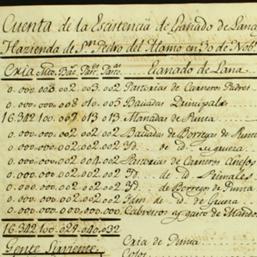 Cuenta de la Existencia de Ganado de Lana
Hazienda de Sn Pedro del Alamo en 30 de Nobe
Cria Mco. Bas. Pars. Pars. Ganado de Lana.
0.000.000.002.003.002 Partorias de Carneros Padres
0.000.000.008.010.005 Baciadas Principales
16.342.100.007.013.013 Manadas de Punta
0.000.000.002.002.002 Baciadas de Borregas de Punta
0.000.000.002.002.002 Yd. de id.
0.000.000.002.004.002 Partorias de Carneros Añejos
0.000.000.002.002.002 Yd. de id. Primales
0.000.000.002.002.002 de Borregos de Punta
0.000.000.002.002.002 Ydem de id.
0.000.000.000.000.000 Cabreros
16.342.100.029.040.032
Gente Sirviente. Cria de Punta